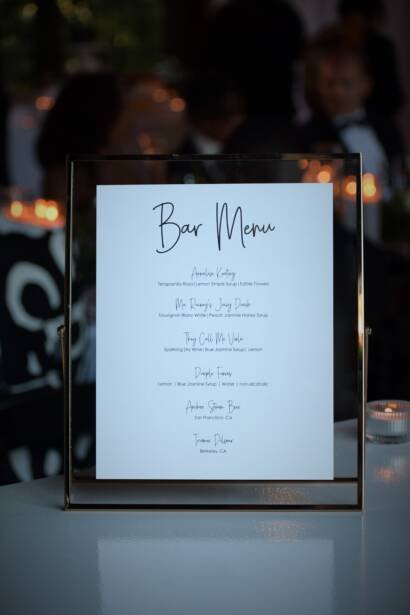 Bar Menu
Annalise Keating
Lemon Simple Syrup | Edible Flowers
Ma Rainey's Juicy
Sauvignon Blanc White | Peach Jasmine Honey Syrup
They Call Me
Sparkling Dry Wine | Blue Jasmine Syrup | Lemon
Lemon | Blue Jasmine Syrup | Water | non-alcoholic
Anchor Steam Beer
San Francisco, CA
Trumer Pilsner
Berkeley, CA